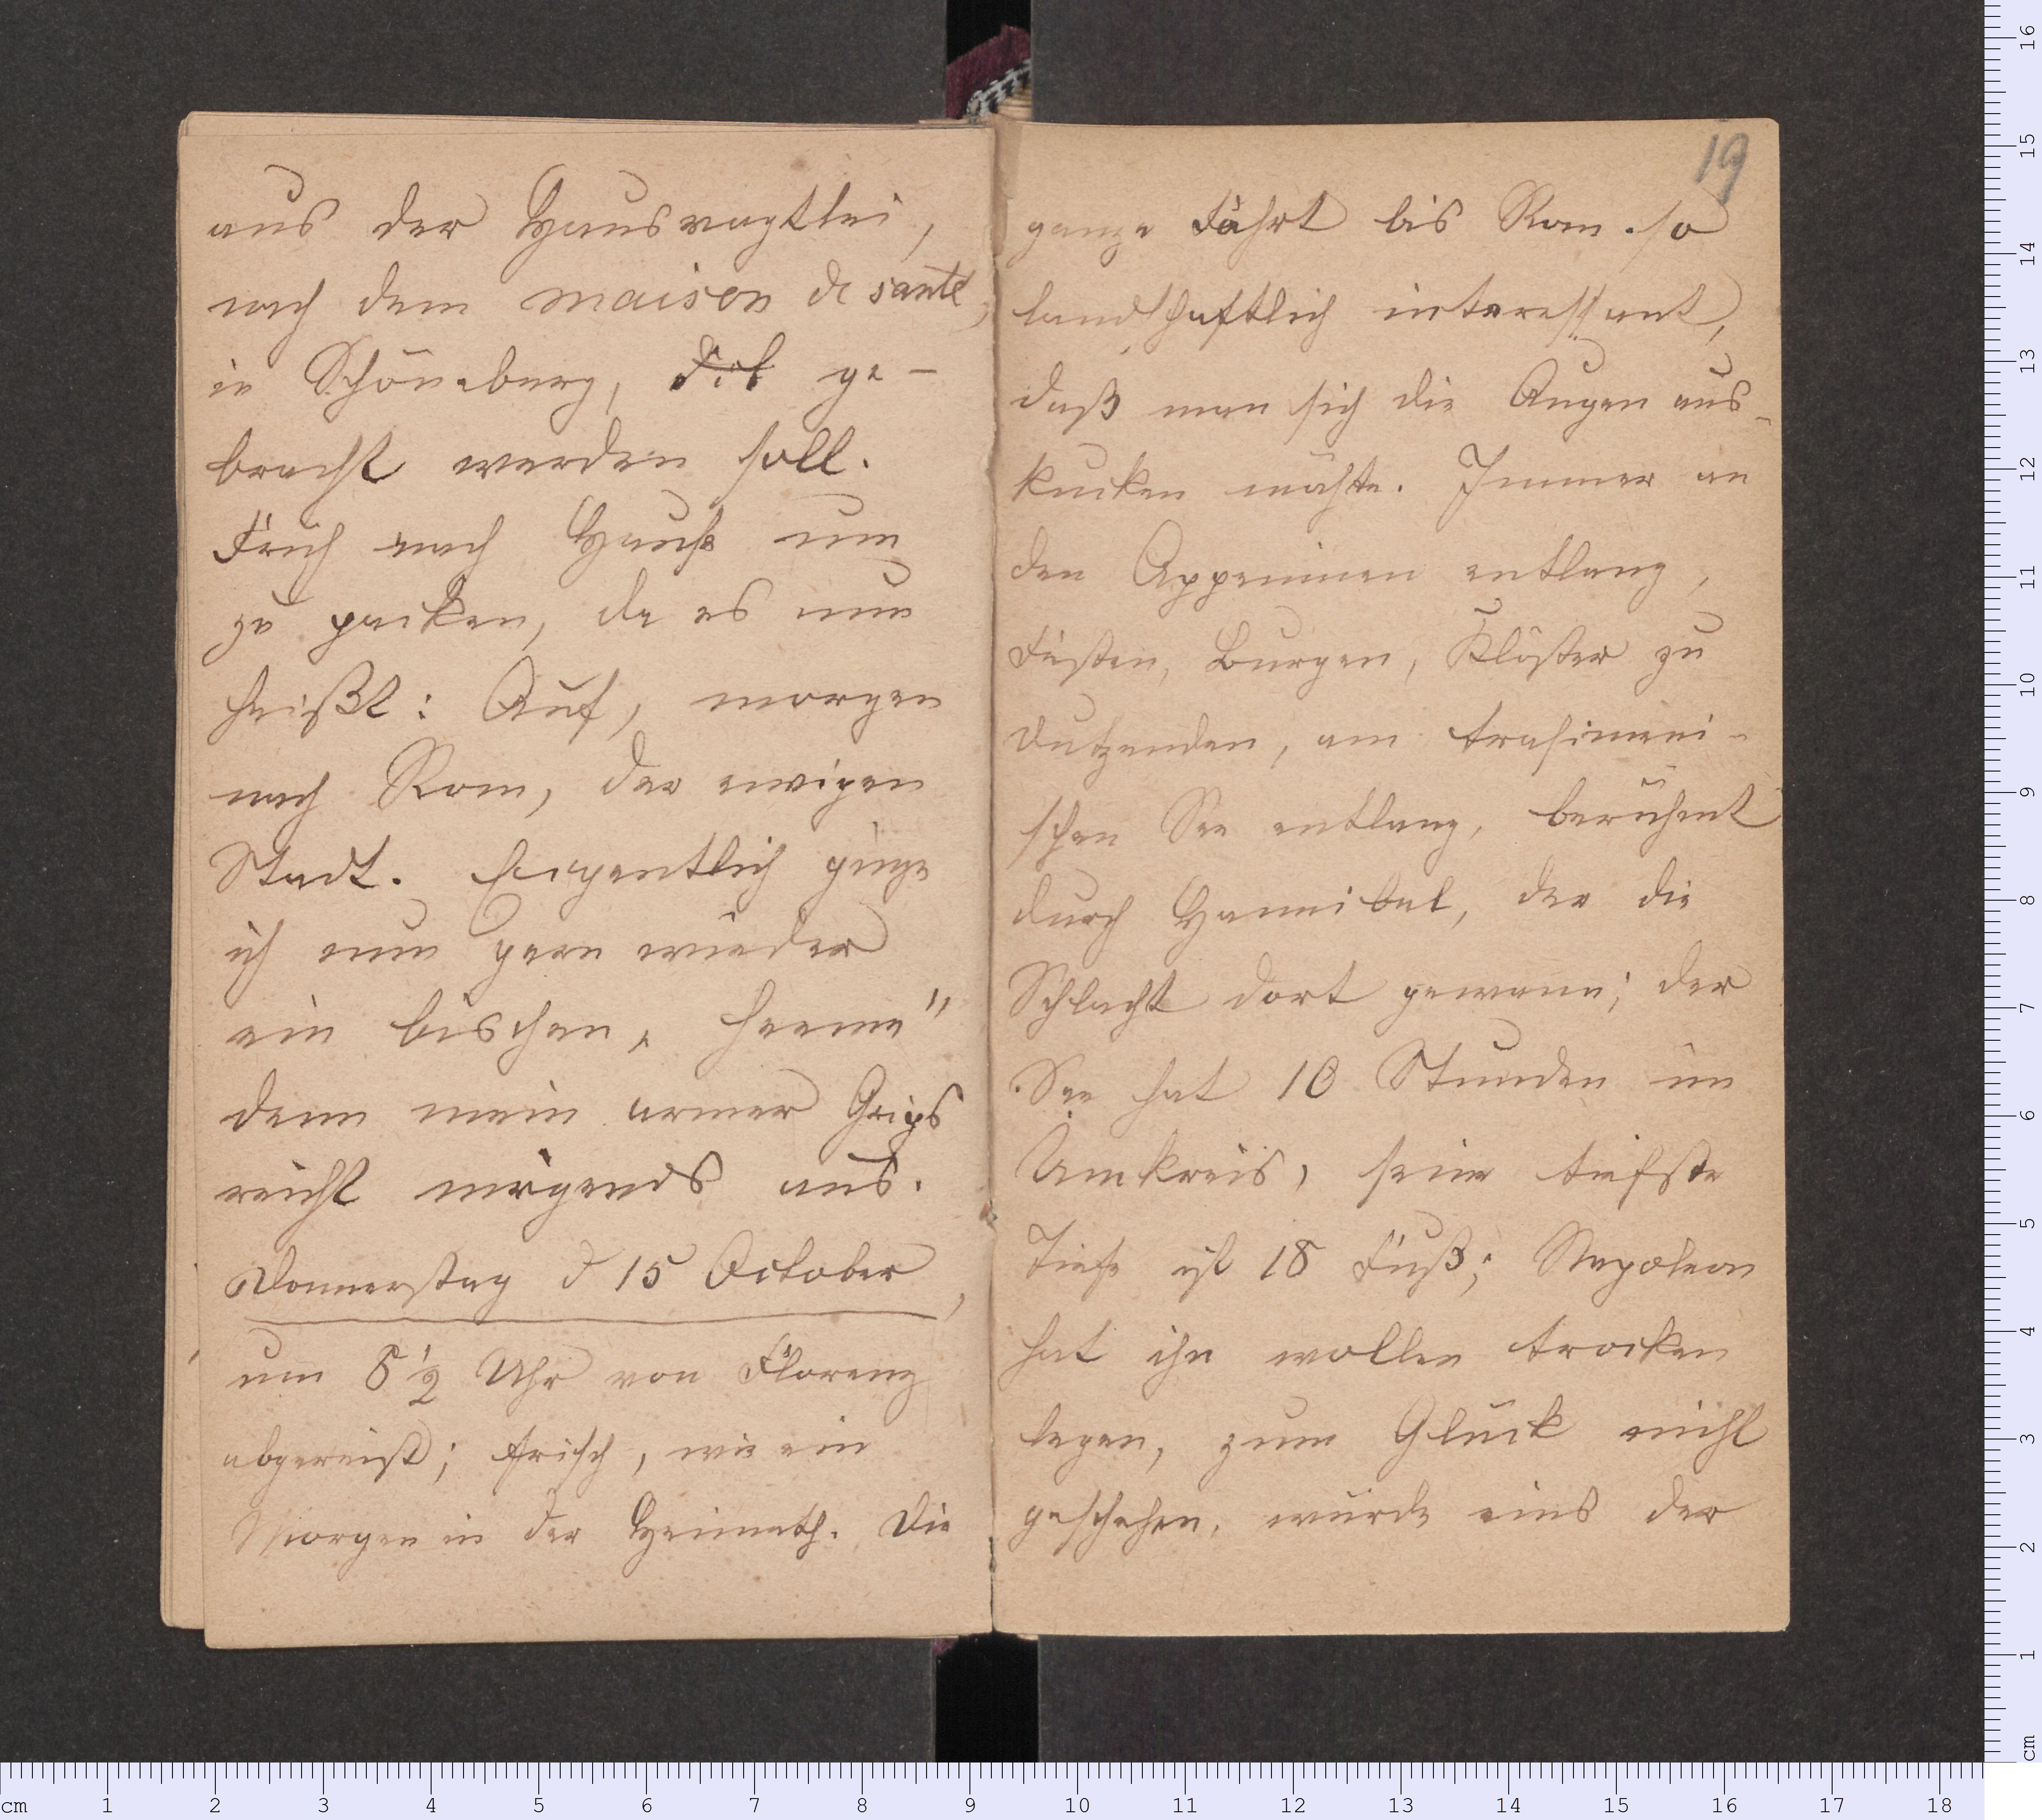 aus der Hausvogtlei,
nach dem maison de santé,
in Schöneberg, ge-
bracht werden soll.
Früh nach Hause um
zu packen, da es nun
heißt: Auf, morgen
nach Rom, der ewigen
Stadt. Eigentlich ginge
ich nun gern wieder
ein bischen „heeme"
denn mein armer Grips
reicht nirgends aus.
Donnerstag d 15 October,
um 8 1/2 Uhr von Florenz
abgereist; frisch, wie ein
Morgen in der Heimath. Die
19
ganze Fahrt bis Rom so
landschaftlich interessant,
daß man sich die Augen aus-
kucken möchte. Immer an
den Appeninen entlang,
Festen, Burgen, Klöster zu
Dutzenden, am trasimeni-
schen See entlang, berühmt
durch Hannibal, der die
Schlacht dort gewann; der
See hat 10 Stunden im
Umkreis, seine tiefste
Tiefe ist 18 Fuß; Napoleon
hat ihn wollen trocken
legen, zum Glück nicht
geschehen, würde eins der